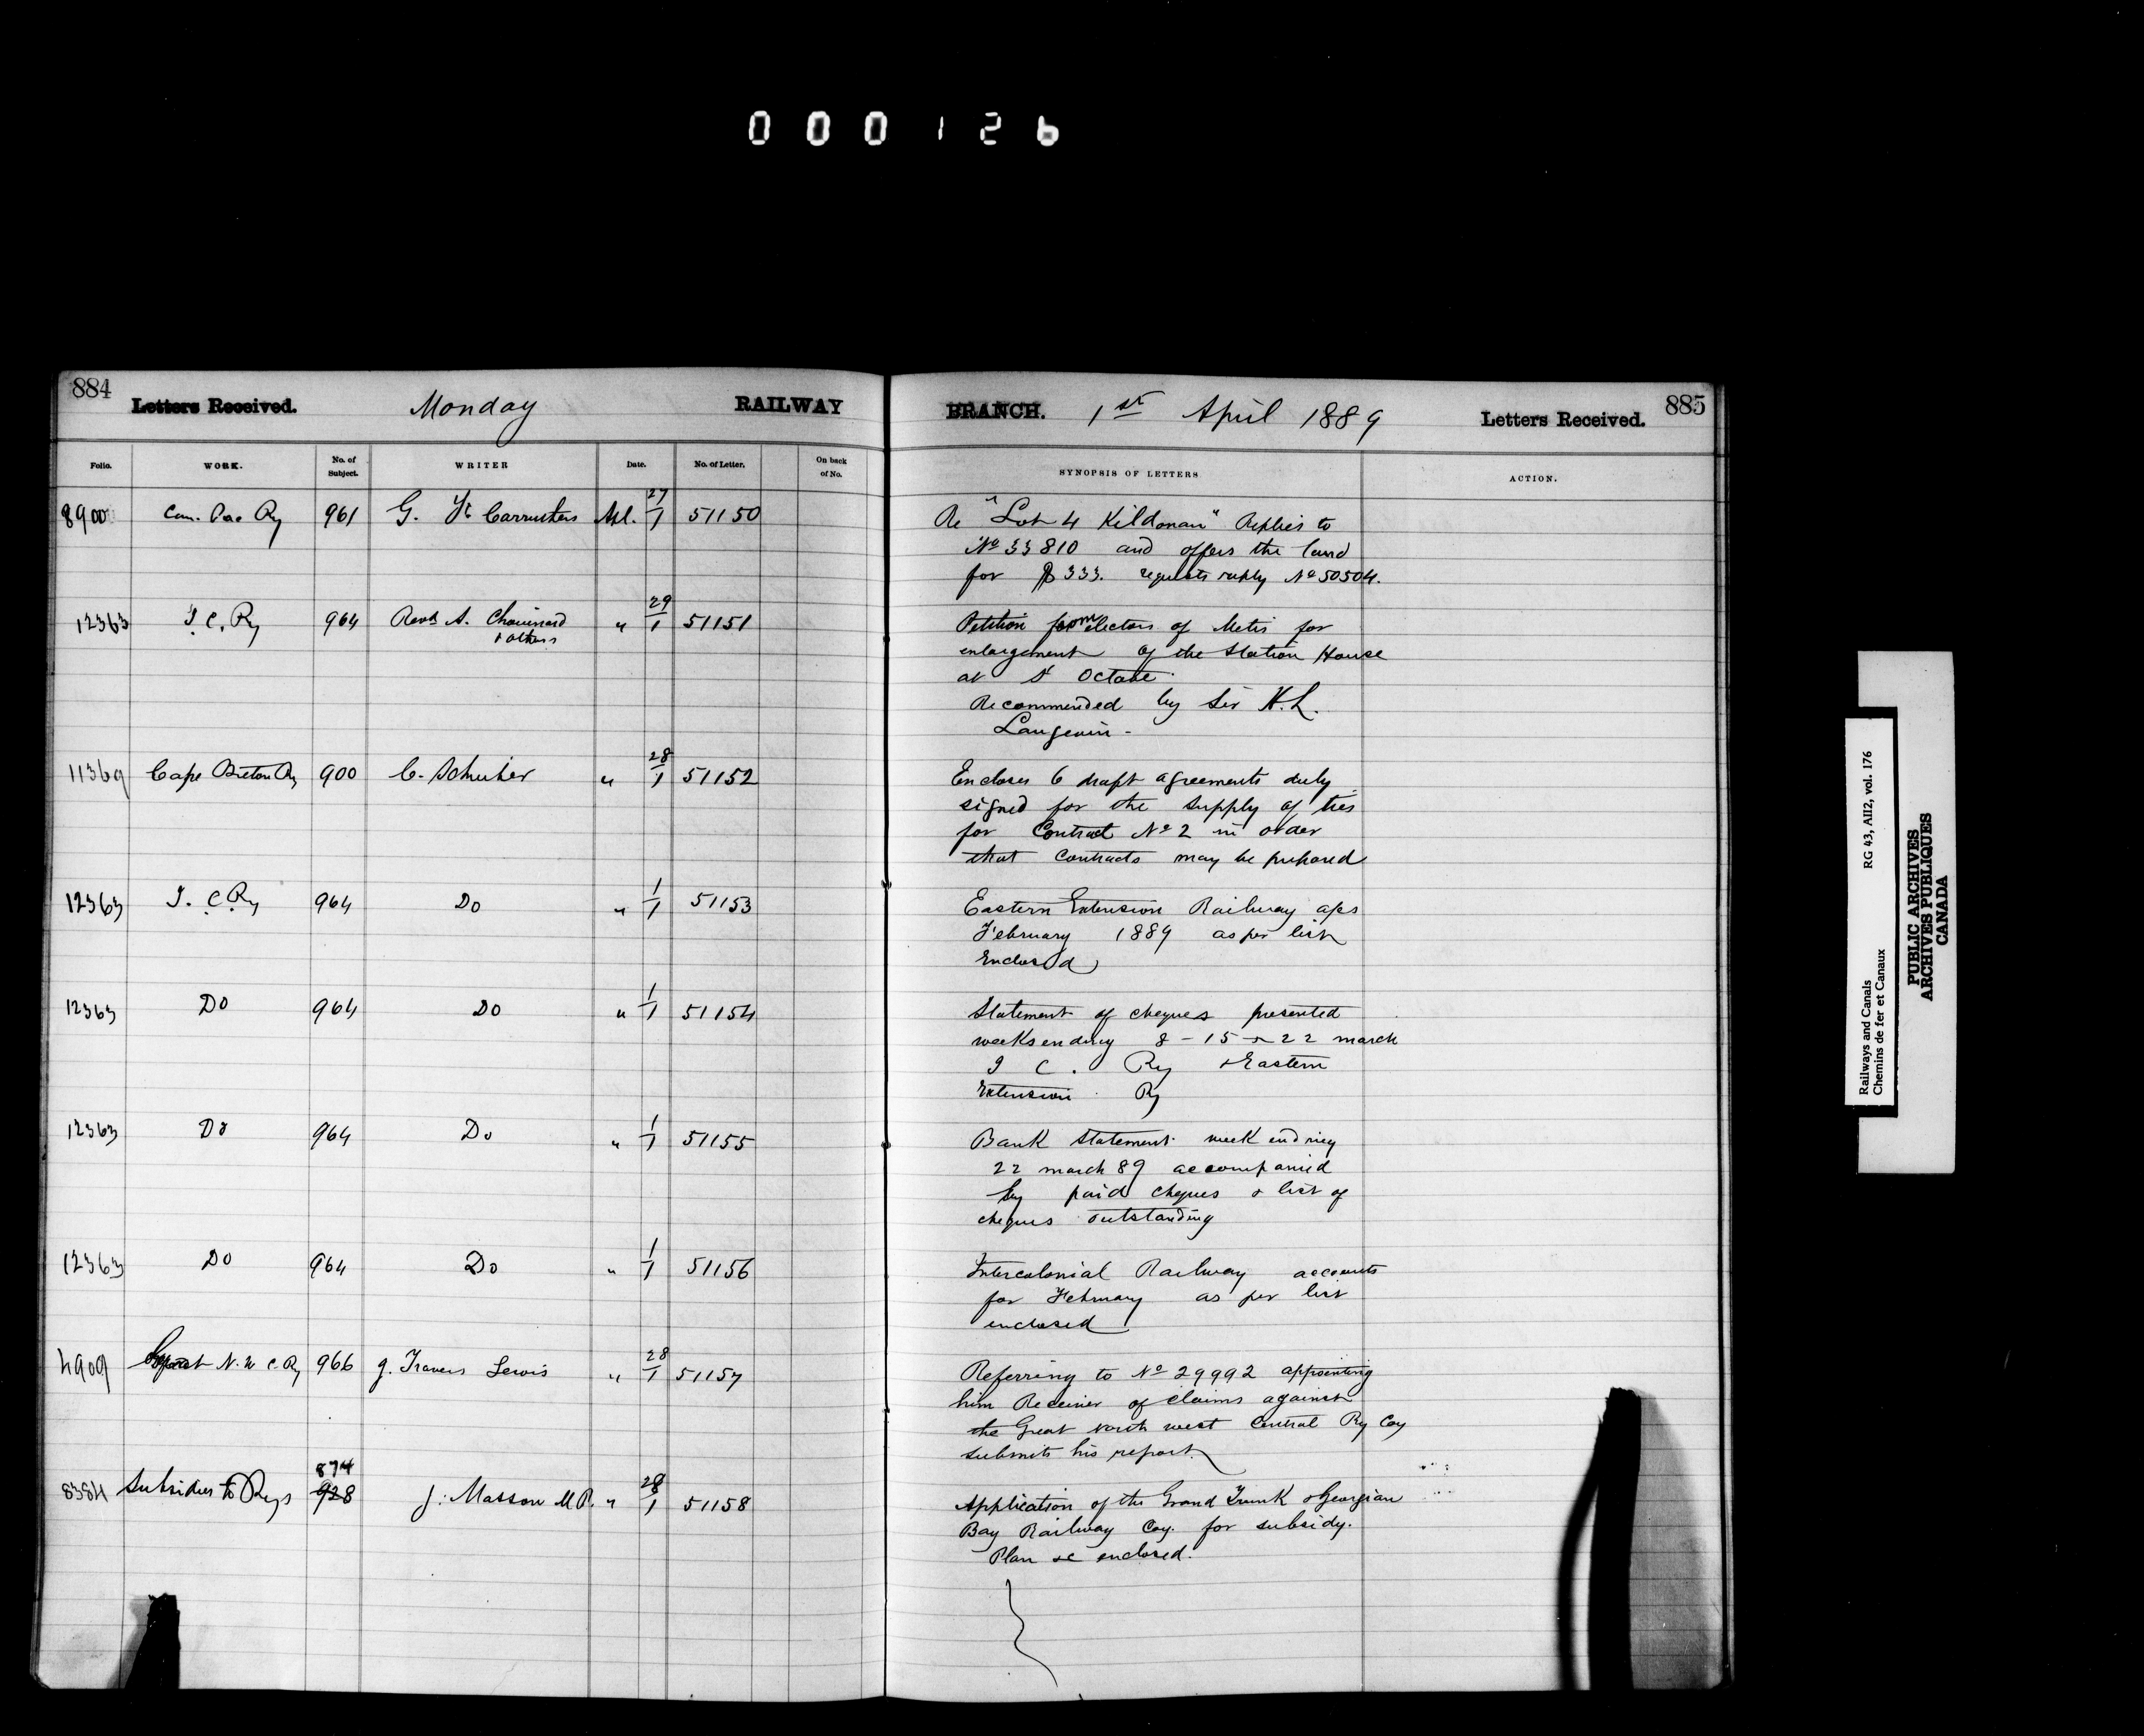 0 0 0 1 2 6
884 Letters Received. Monday RAILWAY
BRANCH. 1st April 1889 Letters Received. 885
Folio. WORK. No. of Subject. WRITER Date. No. of Letter. On back of No.
SYNOPSIS OF LETTERS ACTION.
8900 Can. Pac Ry 961 G. F. Carruthers 27/1 51150
Re "Lot 4 Kildonan" Replies to
No 33810 and offers the land
for $333. requests reply No 50504.
12363 I. C. Ry 964 Revd A. Chouinard & others " 29/1 51151
Petition from electors of Metis for
enlargement of the Station House
at St Octave.
Recommended by Sir H. L.
Langevin -
11369 Cape Breton Ry 900 C. Schreiber " 28/1 51152
Encloses 6 draft agreements duly
signed for the supply of ties
for Contract No 2 in order
that contracts may be prepared
12363 I. C. Ry 964 Do " 1/1 51153
Eastern Extension Railway a/cs
February 1889 as per list
Enclosed
12363 Do 964 Do " 1/1 51154
Statement of cheques presented
weeks ending 8 - 15 & 22 march
I C. Ry & Eastern
Extension Ry
12363 Do 964 Do " 1/1 51155
Bank Statement week ending
22 march 89 accompanied
by paid cheques & list of
cheques outstanding
12363 Do 964 Do " 1/1 51156
Intercolonial Railway accounts
for February as per list
enclosed
4909 N. W C. Ry 966 J. Travers Lewis " 28/1 51157
Referring to No 29992 appointing
him Receiver of claims against
the Great North west Central Ry Coy
submits his report.
8384 Subsidies to Rys 874 928 J. Masson M.P. " 28/1 51158
Application of the Grand Trunk & Georgian
Bay Railway Coy. for subsidy.
Plan &c enclosed.
Railways and Canals RG 43, AII2, vol. 176
Chemins de fer et Canaux
PUBLIC ARCHIVES
ARCHIVES PUBLIQUES
CANADA